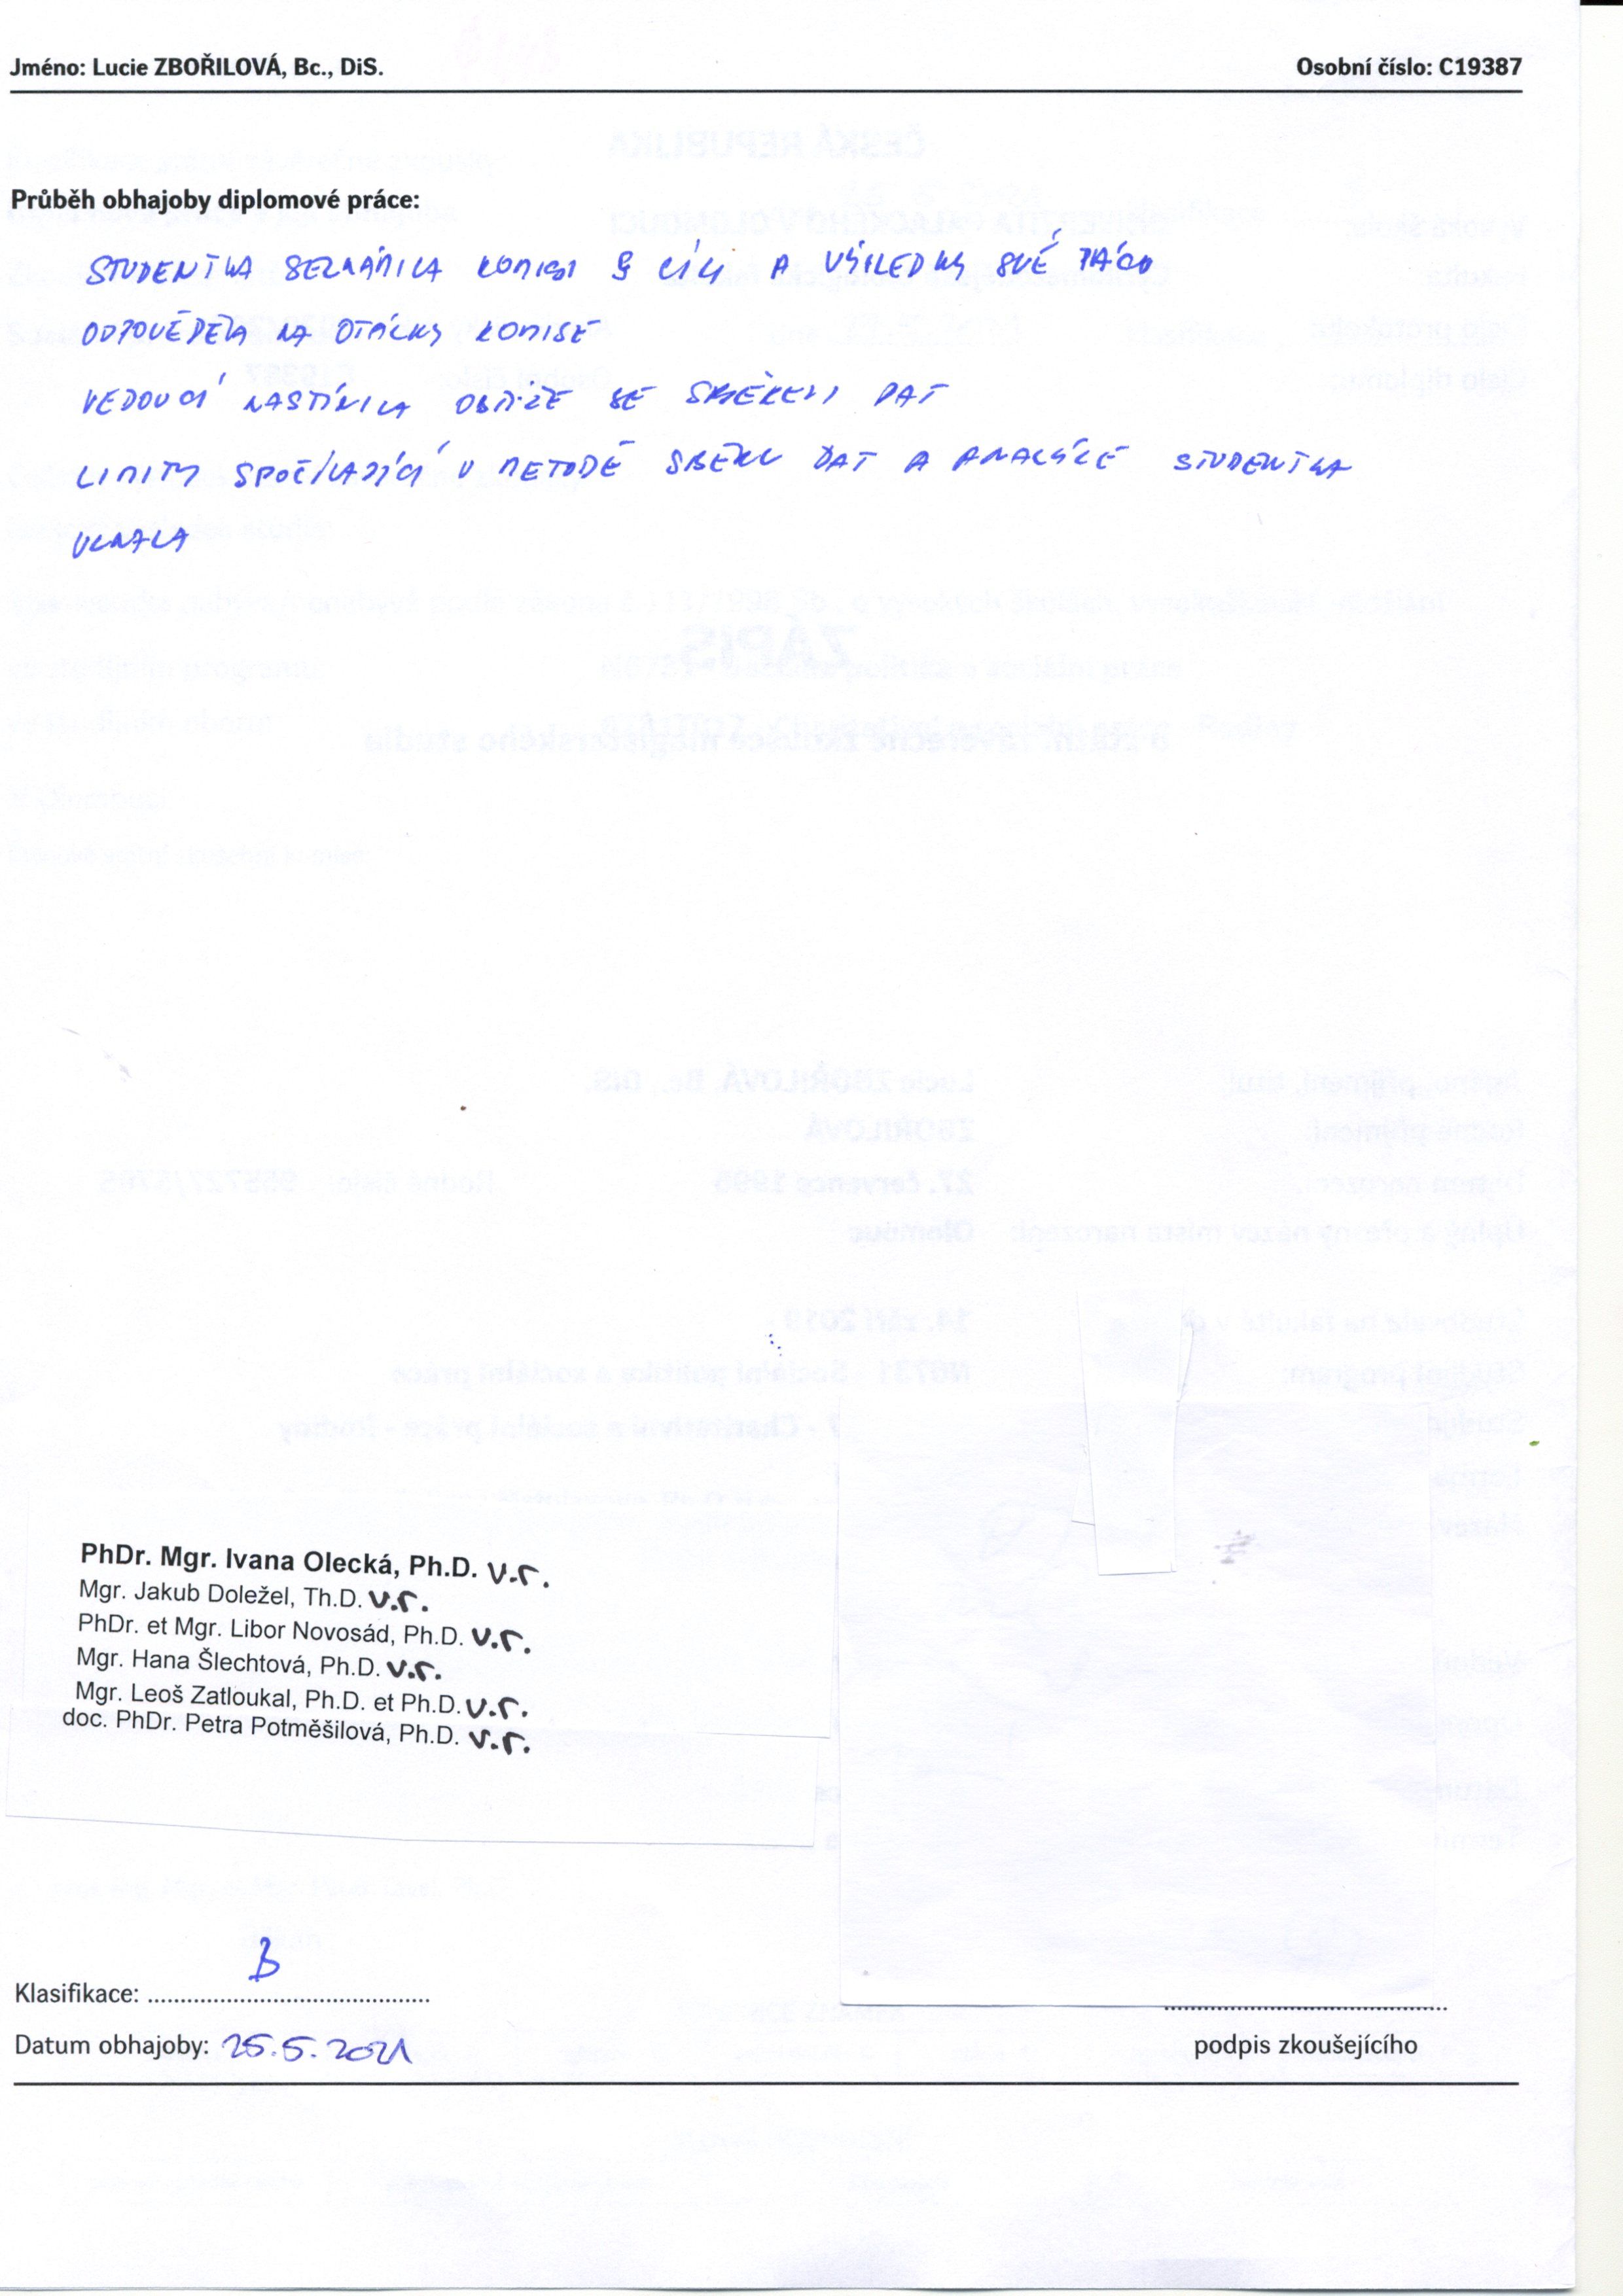 Jméno: Lucie ZBOŘILOVÁ, Bc., DiS. Osobní číslo: C19387
Průběh obhajoby diplomové práce:
STUDENTKA SEZNÁMILA KOMISI S CÍLI A VÝSLEDKY SVÉ PRÁCE
ODPOVĚDĚLA NA OTÁZKY KOMISE
VEDOUCÍ NASTÍNILA OBTÍŽE SE SBĚREM DAT
LIMITY SPOČÍVAJÍCÍ V METODĚ SBĚRU DAT A ANALÝZE STUDENTKA
UZNALA
PhDr. Mgr. Ivana Olecká, Ph.D. v.r.
Mgr. Jakub Doležel, Th.D. v.r.
PhDr. et Mgr. Libor Novosád, Ph.D. v.r.
Mgr. Hana Šlechtová, Ph.D. v.r.
Mgr. Leoš Zatloukal, Ph.D. et Ph.D. v.r.
doc. PhDr. Petra Potměšilová, Ph.D. v.r.
Klasifikace: B
Datum obhajoby: 25.5.2021 podpis zkoušejícího